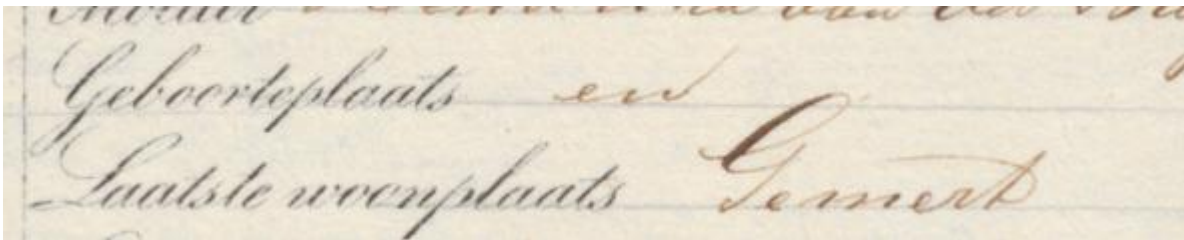 Geboorteplaats en
Laatste woonplaats Gemert